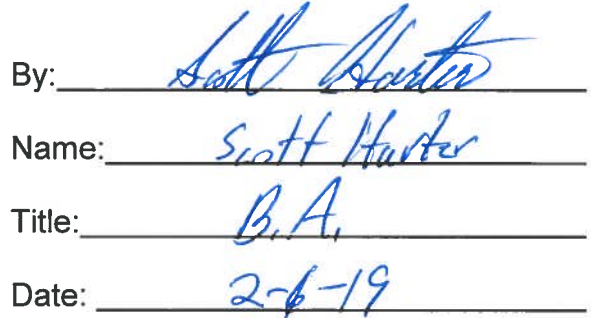 By: Scott Harter
Name: Scott Harter
Title: B.A.
Date: 2-6-19